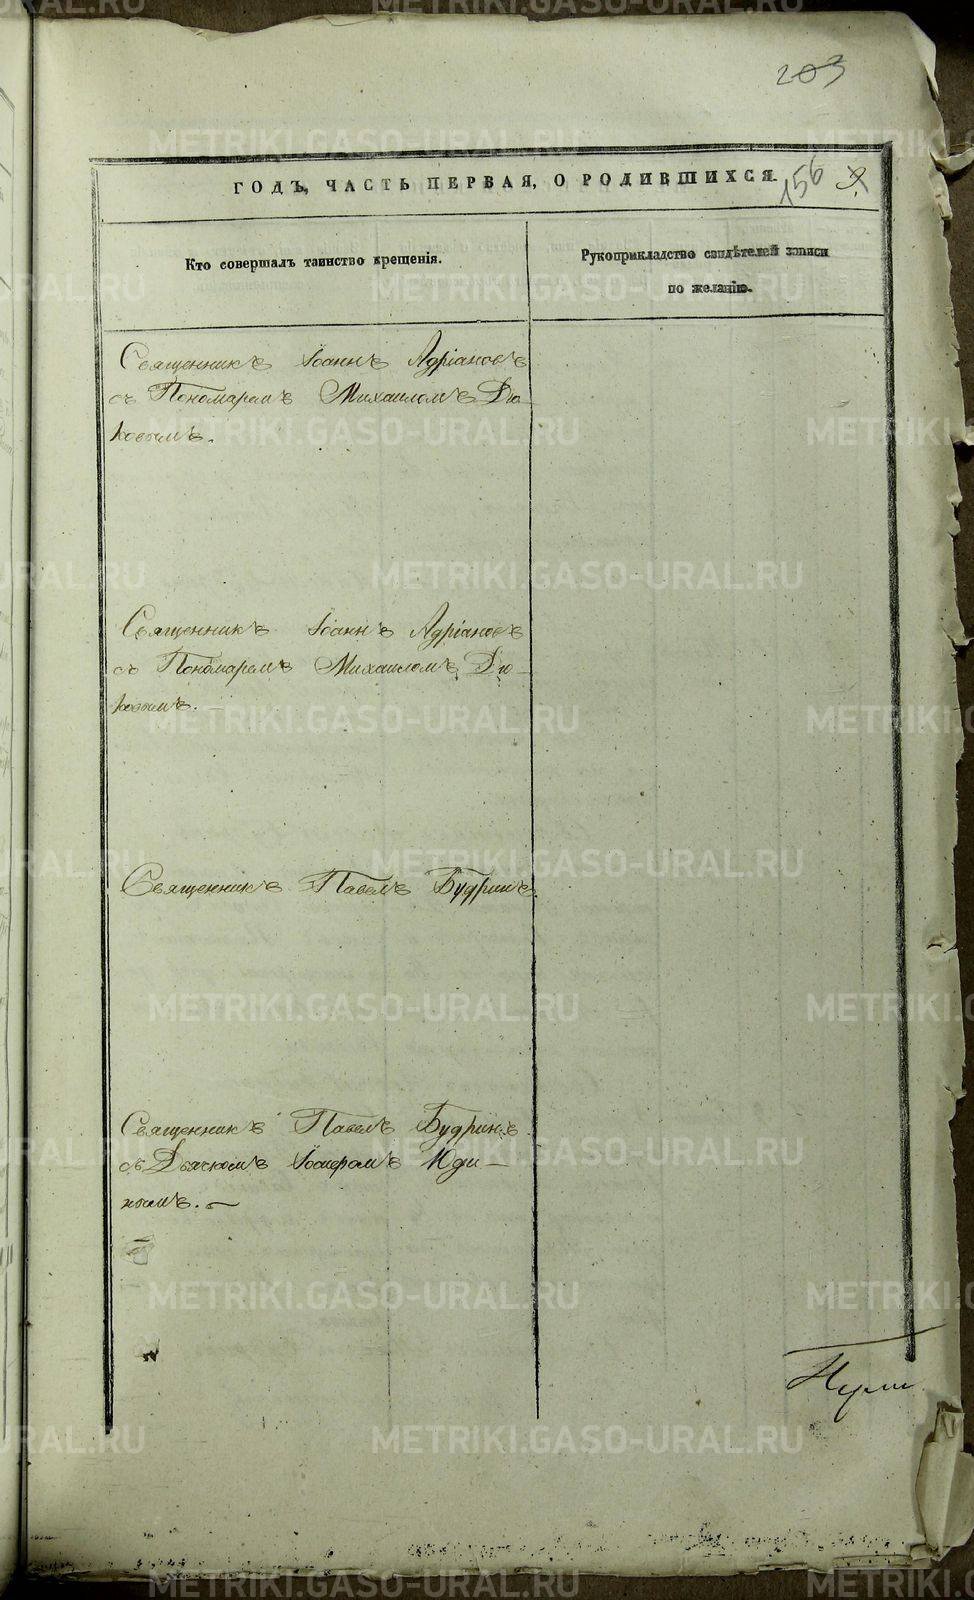 203
ГОДЪ, ЧАСТЬ ПЕРВАЯ, О РОДИВШИХСЯ.
156
Кто совершалъ таинство крещенія.
Рукоприкладство свидѣтелей записи
по желанію.
Священникъ Іоаннъ Адріановъ
съ Пономаремъ Михаиломъ Дю-
ковымъ.
Священникъ Іоаннъ Адріановъ
съ Пономаремъ Михаиломъ Дю-
ковымъ.
Священникъ Павелъ Будринъ.
Священникъ Павелъ Будринъ
съ Дьячкомъ Іосифомъ Юди-
нымъ.
METRIKI.GASO-URAL.RU